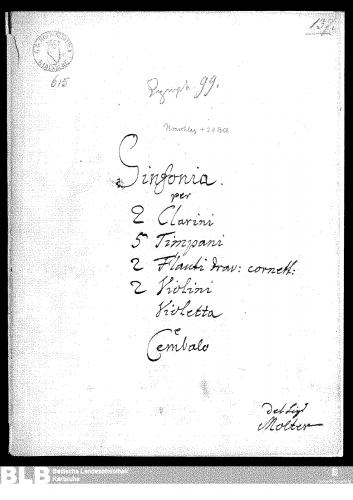 137.
615
99.
Sinfonia.
per
2 Clarini
5 Timpani
2 Flauti trav: cornett:
2 Violini
Violetta
e
Cembalo
del Sigr
Molter
BLB Badische Landesbibliothek
Karlsruhe